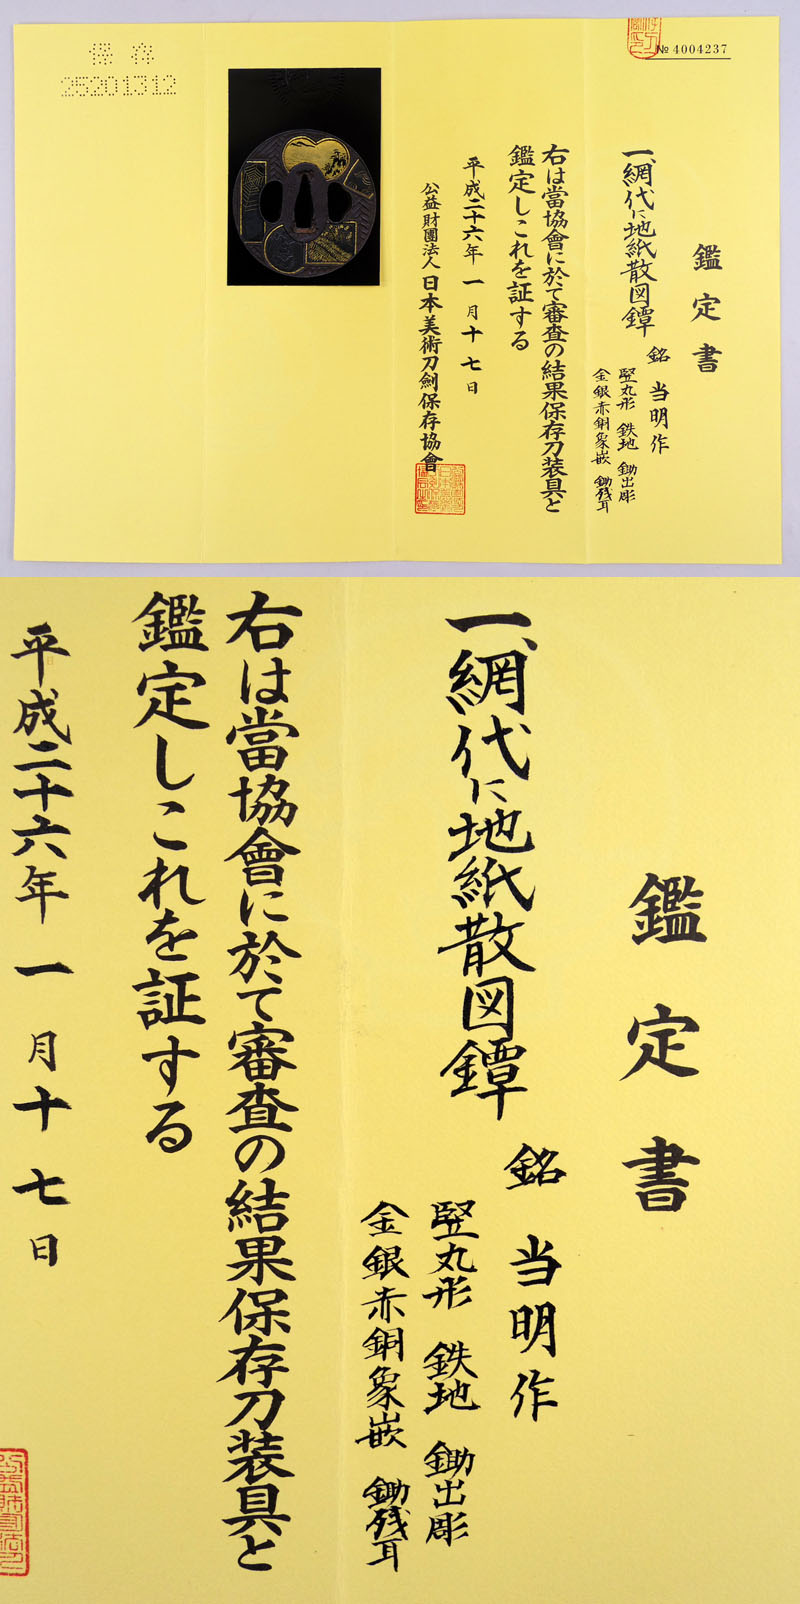 保存
25201312
№ 4004237
鑑定書
一、網代に地紙散図鐔
銘 当明作
竪丸形 鉄地 鋤出彫
金銀赤銅象嵌 鋤残耳
右は當協會に於て審査の結果保存刀装具と
鑑定しこれを証する
平成二十六年一月十七日
公益財團法人日本美術刀劍保存協會
鑑定書
一、網代に地紙散図鐔
銘 当明作
竪丸形 鉄地 鋤出彫
金銀赤銅象嵌 鋤残耳
右は當協會に於て審査の結果保存刀装具と
鑑定しこれを証する
平成二十六年一月十七日